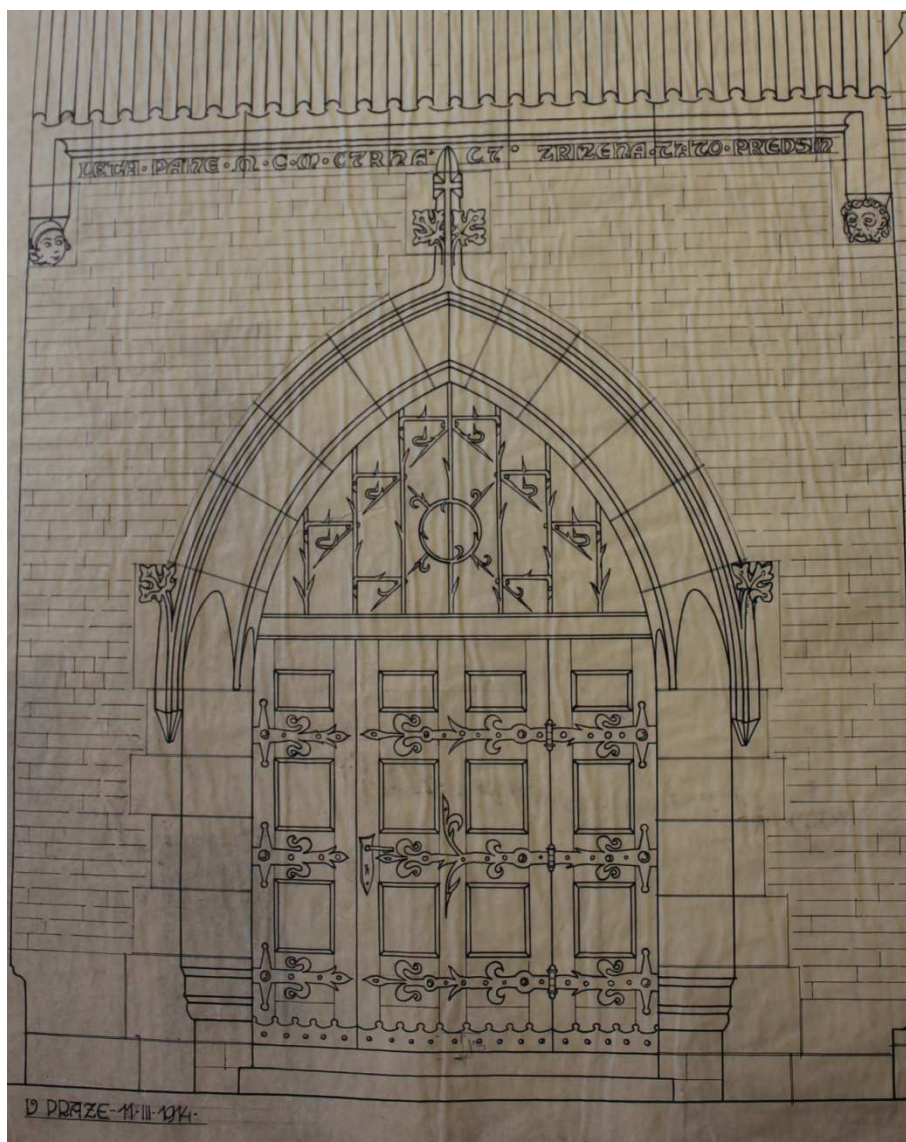 LETA·PANE·M·C·M·CTRNA' CT° ZRIZENA·TATO·PREDSIN
V PRAZE-11·III·1914·